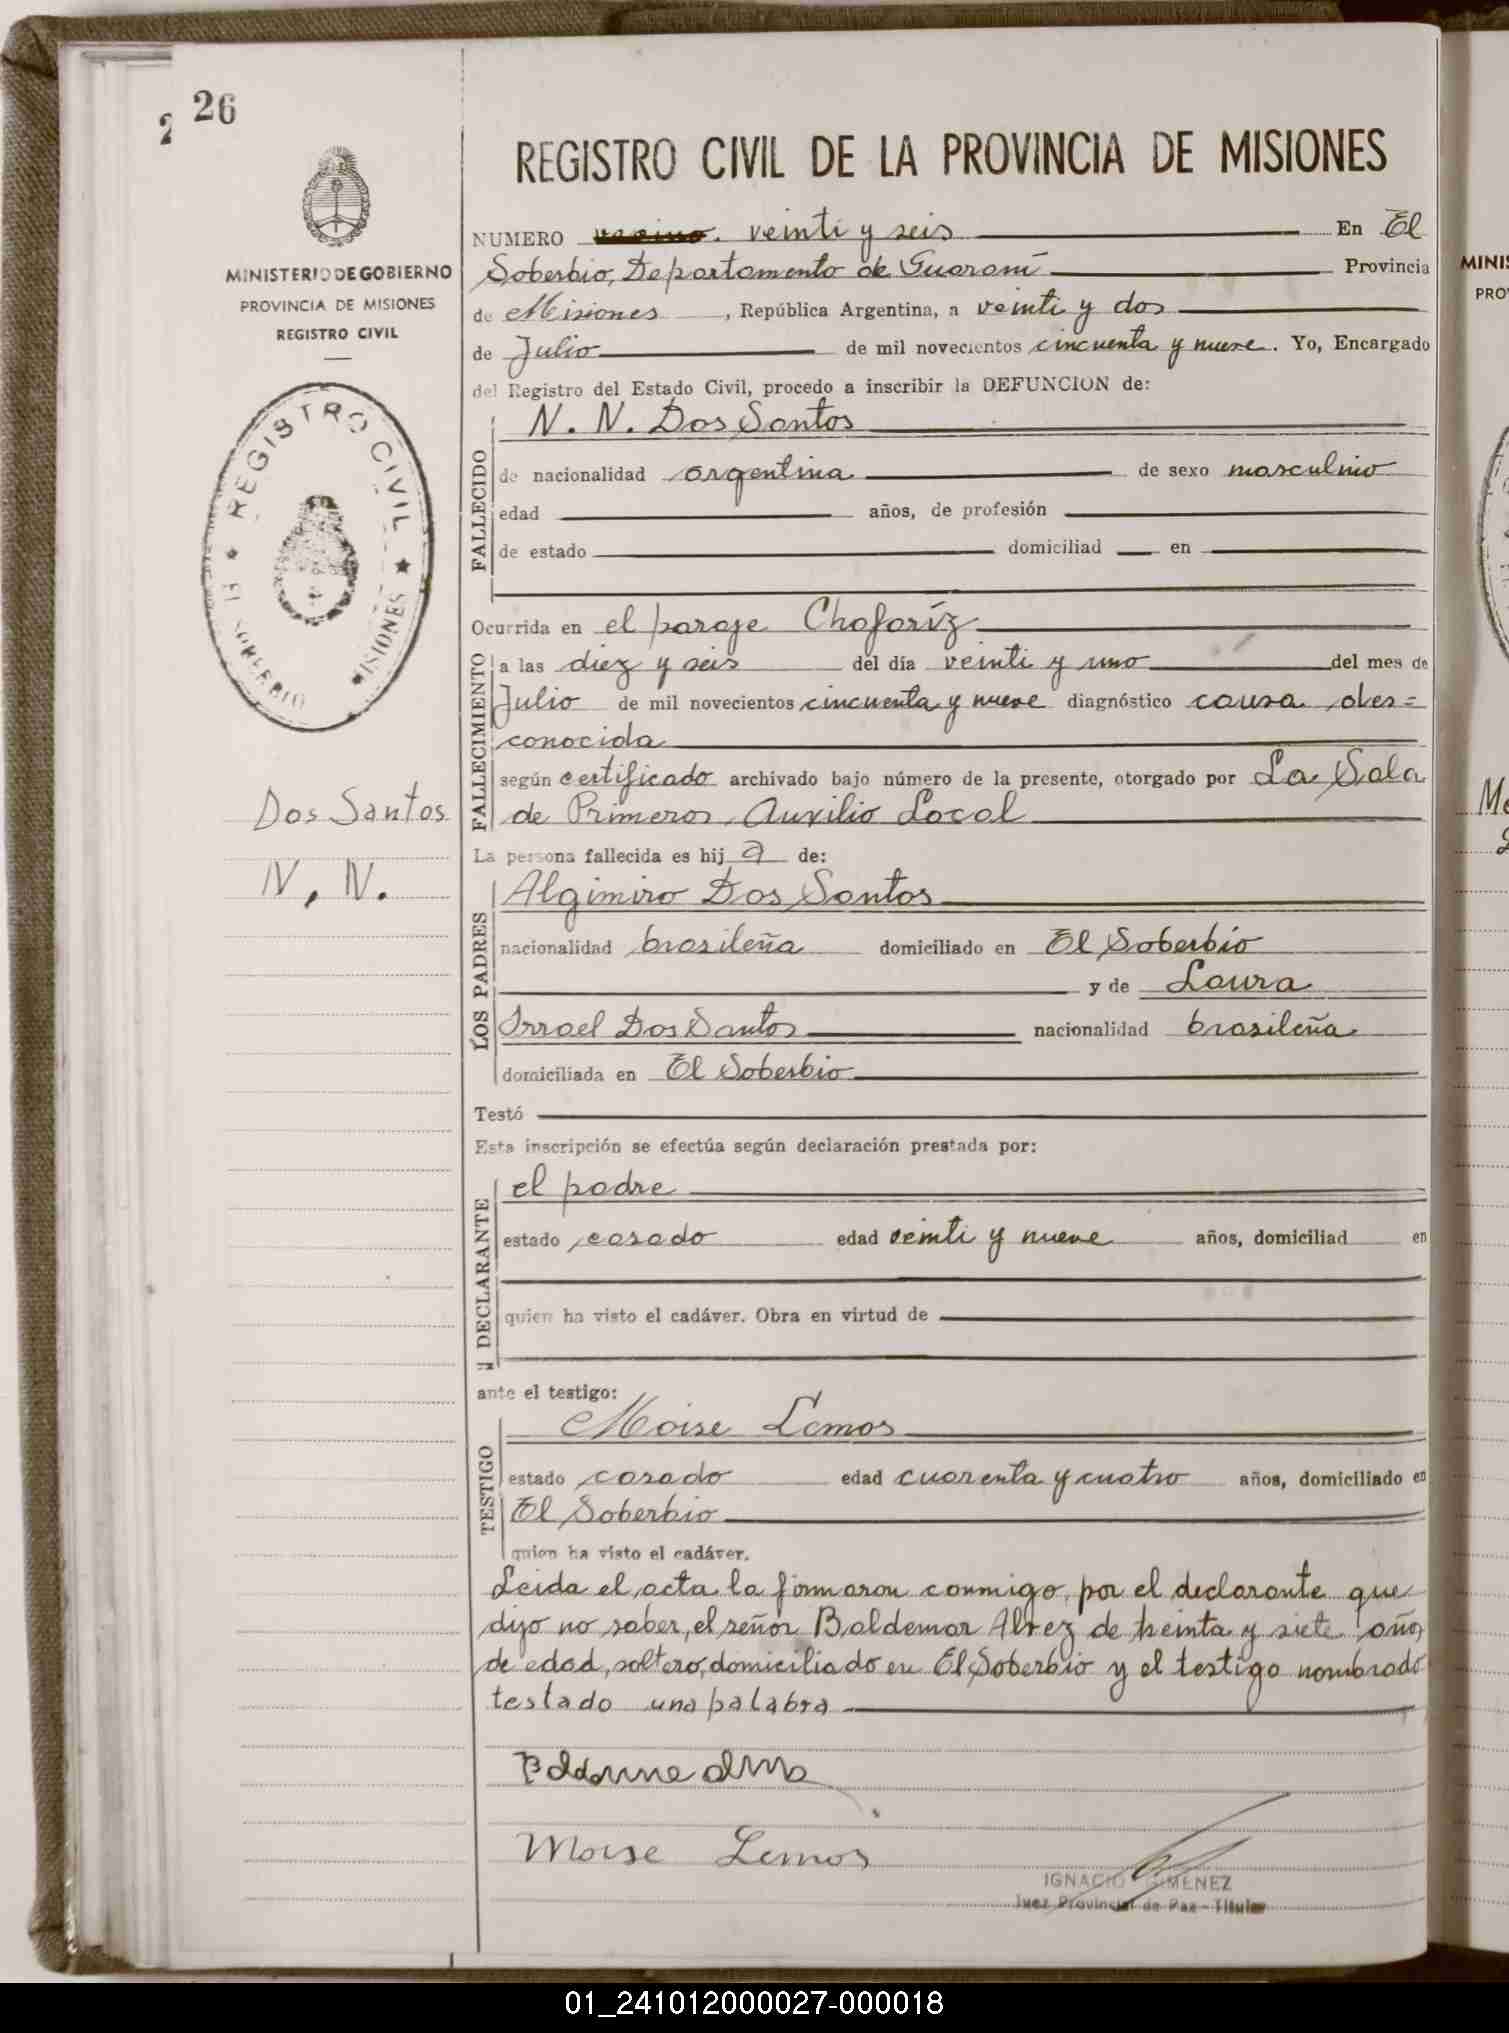 26
REGISTRO CIVIL DE LA PROVINCIA DE MISIONES
MINISTERIO DE GOBIERNO
PROVINCIA DE MISIONES
REGISTRO CIVIL
REGISTRO CIVIL ★ MISIONES ★ EL SOBERBIO ★
Dos Santos
N. N.
NUMERO veinti y seis En El
Soberbio, Departamento de Guaraní Provincia
de Misiones, República Argentina, a veinti y dos
de Julio de mil novecientos cincuenta y nueve. Yo, Encargado
del Registro del Estado Civil, procedo a inscribir la DEFUNCION de:
FALLECIDO
N. N. Dos Santos
de nacionalidad argentina de sexo masculino
edad años, de profesión
de estado domiciliad en
Ocurrida en el paraje Chafaríz
FALLECIMIENTO
a las diez y seis del día veinti y uno del mes de
Julio de mil novecientos cincuenta y nueve diagnóstico causa des=
conocida
según certificado archivado bajo número de la presente, otorgado por La Sala
de Primeros Auxilio Local
La persona fallecida es hij o de:
LOS PADRES
Algimiro Dos Santos
nacionalidad brasileña domiciliado en El Soberbio
y de Laura
Israel Dos Santos nacionalidad brasileña
domiciliada en El Soberbio
Testó
Esta inscripción se efectúa según declaración prestada por:
DECLARANTE
el padre
estado casado edad veinti y nueve años, domiciliad en
quien ha visto el cadáver. Obra en virtud de
ante el testigo:
TESTIGO
Moise Lemos
estado casado edad cuarenta y cuatro años, domiciliado en
El Soberbio
quien ha visto el cadáver.
Leida el acta la firmaron conmigo, por el declarante que
dijo no saber, el señor Baldemar Alvez de treinta y siete años
de edad, soltero, domiciliado en El Soberbio y el testigo nombrado
testado una palabra
Moise Lemos
IGNACIO GIMENEZ
Juez Provincial de Paz - Titular
MINIS
PRO
01_241012000027-000018